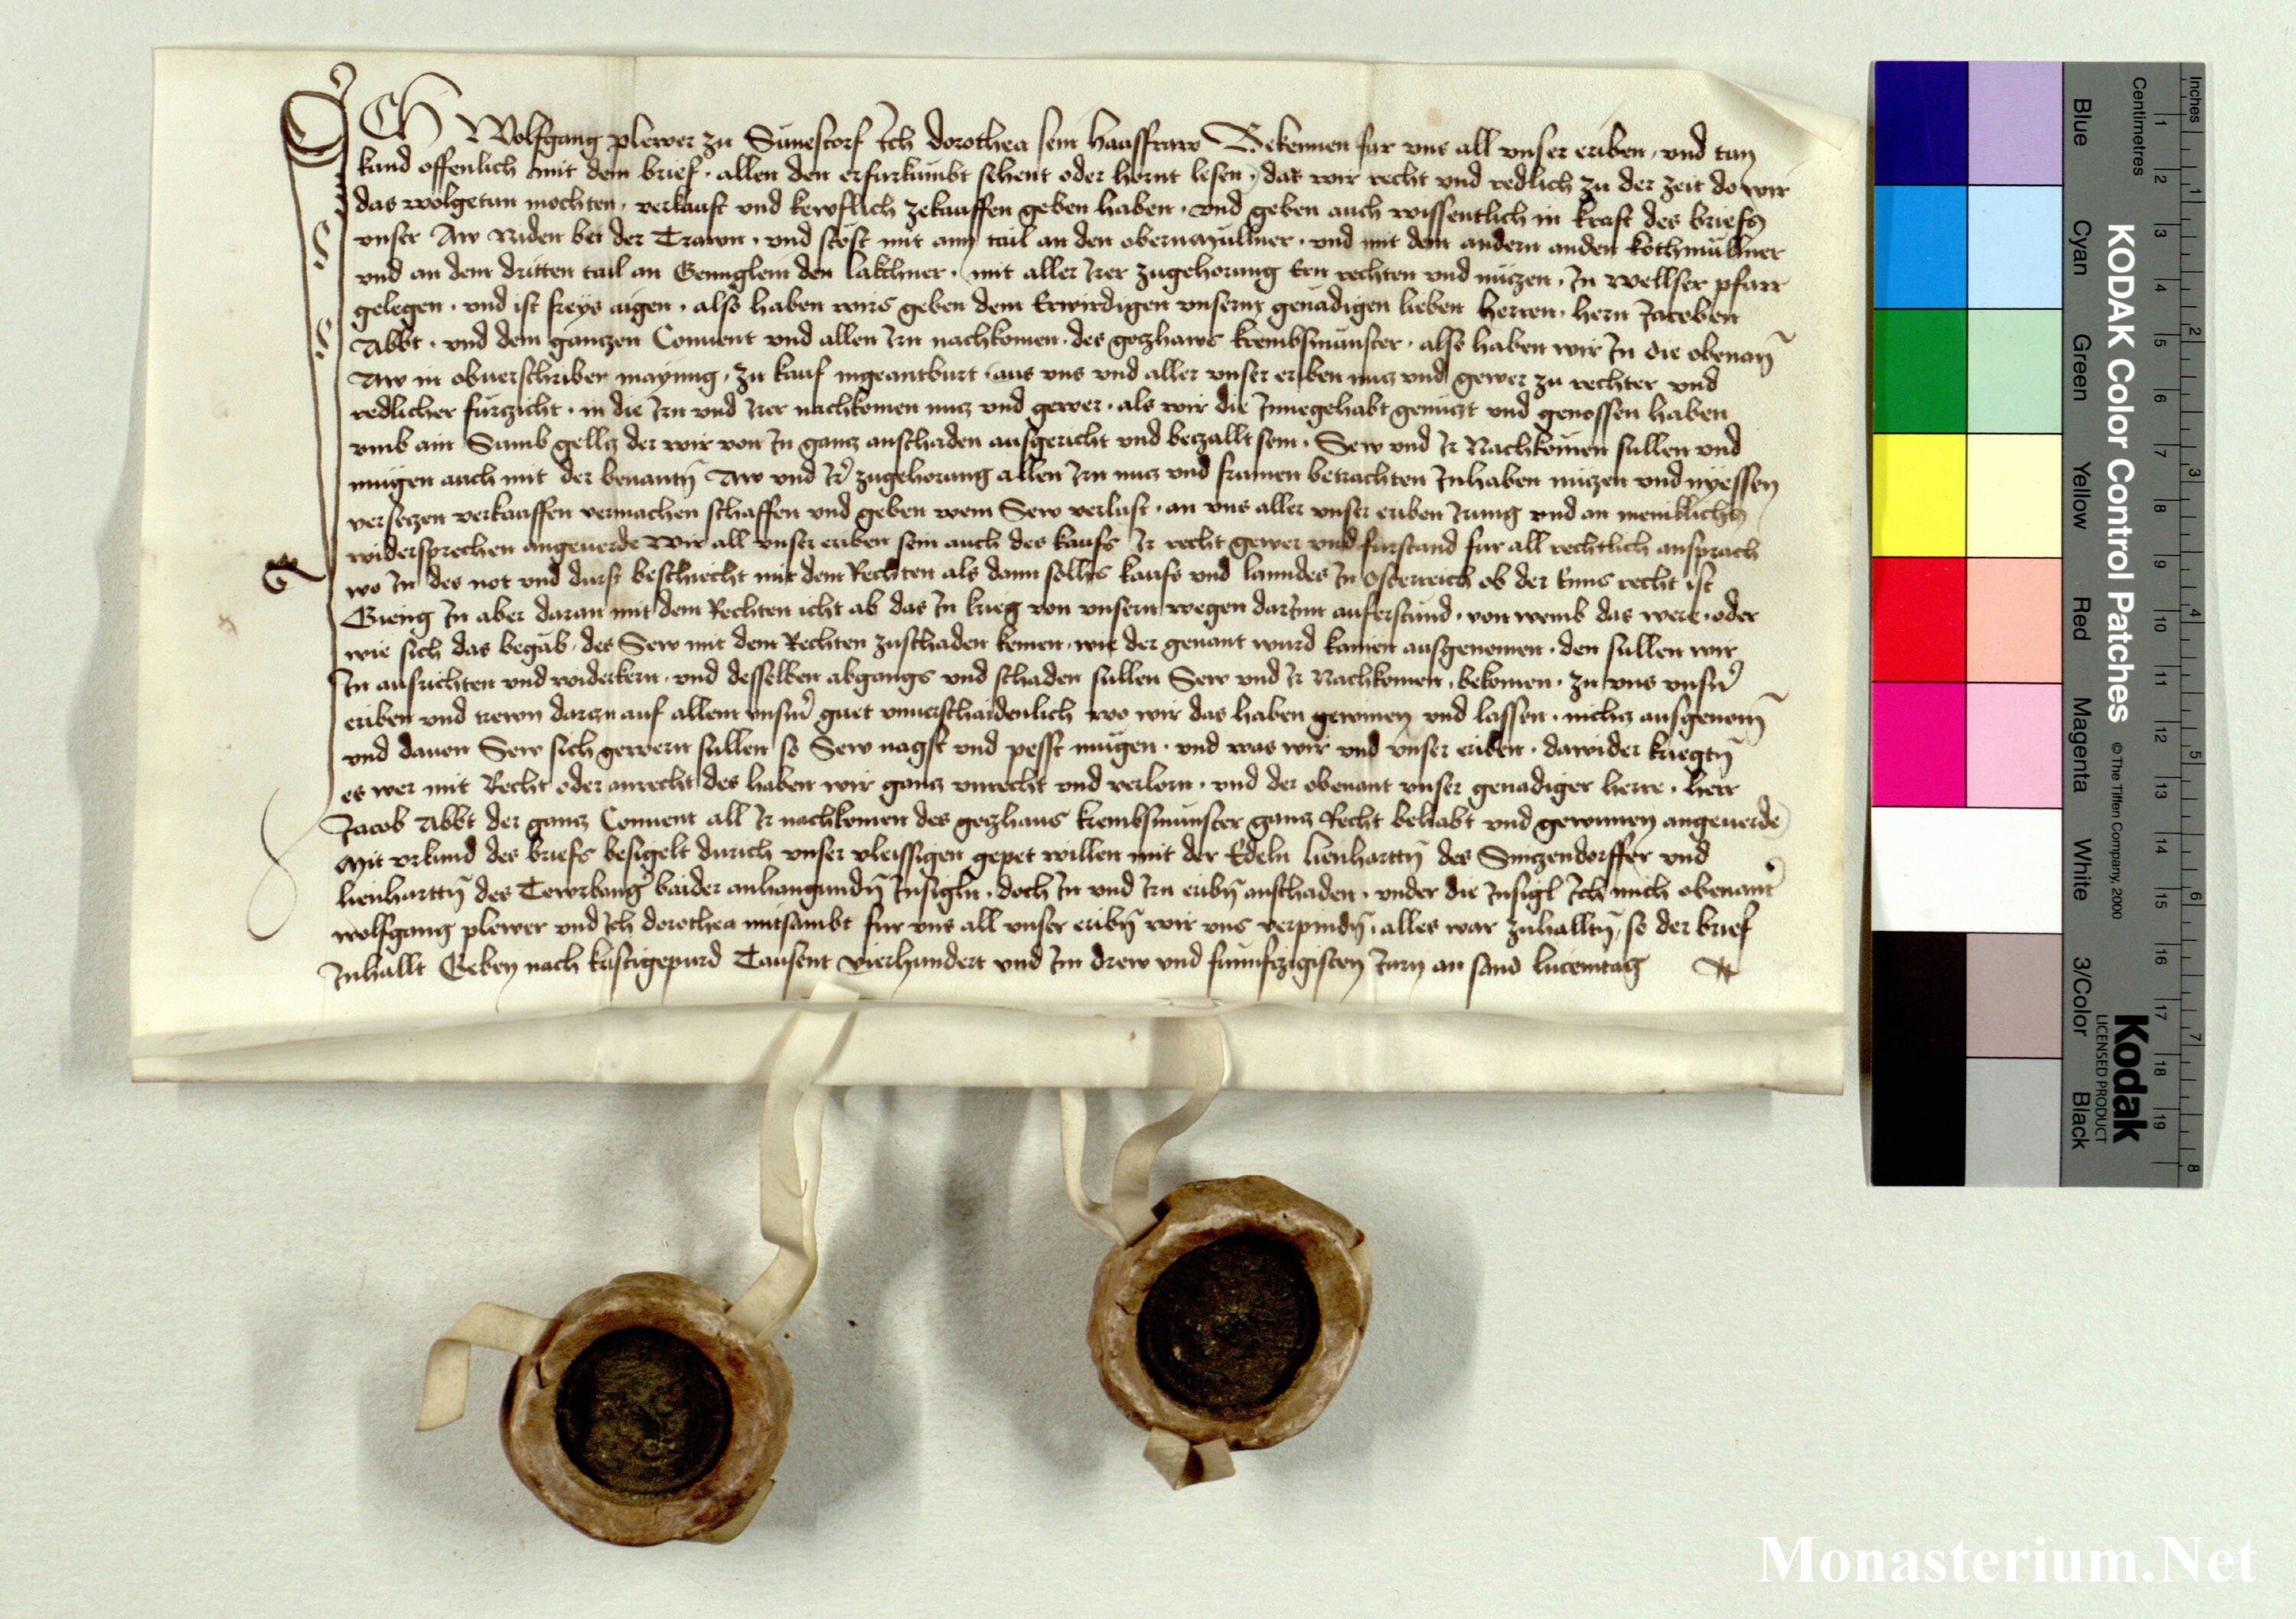 ICh Wolfgang plewer zu Sunestorf Ich dorothea sein hausfraw Bekennen fur vns all vnser eriben, vnd tun
kund offenlich mit dem brief, allen den er furkumbt sehent oder hornt lesen, das wir recht vnd redlich zu der zeit do wir
das wolgetun mochten, verkauft vnd kewflich zekauffen geben haben, vnd geben auch wissentlich in kraft des briefs
vnser Aw niden bei der Trawn, vnd stost mit aim tail an den obernmullner, vnd mit dem andern an den kothmullner
vnd an dem dritten tail an den lakchner, mit aller irer zugehorung ern rechten vnd nuczen, In wellser pfarr
gelegen, vnd ist freys aigen, also haben wirs geben dem Erwirdigen vnserm genadigen lieben herren, hern Jacoben
Abbt, vnd dem ganczen Conuent vnd allen irn nachkomen, des goczhaws krembsmunster, also haben wir In die obenan̄
Aw in obuerschriber maynung, zu kauf ingeantburt aus vns vnd aller vnser eriben nucz vnd gewer zu rechter vnd
redlicher furczicht, in die irn vnd irer nachkomen nucz vnd gewer, als wir die Innegehabt genuczt vnd genossen haben
vmb ain Sumb gellcz der wir von In gancz anschaden ausgericht vnd beczallt sein, Sew vnd ir Nachkomen sullen vnd
mugen auch mit der benantn̄ Aw vnd ir zugehorung allen irn nucz vnd frumen betrachten Inhaben nuczen vnd nyessen
verseczen verkauffen vermachen schaffen vnd geben wem Sew verlust, an vns aller vnser eriben irrung vnd an meniklichs
widersprechen angeuerde wir all vnser eriben sein auch des kaufs ir recht gewer vnd furstand fur all rechtlich ansprach
wo In des not vnd durft beschiecht mit dem Rechten als dann sollhs kaufs vnd lanndes In Osterreich ob der Enns recht ist
Gieng In aber daran mit dem Rechten icht ab das In krieg von vnsern wegen darinn auferstund, von wemb das were, oder
wie sich das begab, des Sew mit dem Rechten zuschaden komen, wie der genant wurd kainen ausgenomen, den sullen wir
In ausrichten vnd widerkern, vnd desselben abgangs vnd schaden sullen Sew vnd ir Nachkomen, bekomen, zu vns vnsern
eriben vnd trewn darczu auf allem vnserm guet vnuerschaidenlich wo wir das haben gewinnen vnd lassen, nichcz ausgenom̄
vnd dauon Sew sich gewern sullen so Sew nagst vnd pesst mugen, vnd was wir vnd vnser eriben, dawider kriegtn̄
es wer mit Recht oder anrecht des haben wir gancz vnrecht vnd verlorn, vnd der obenant vnser genadiger herre, herr
Jacob Abbt der gancz Conuent all ir nachkomen des goczhaus krembsmunster gancz Recht behabt vnd gewunnen angeuerde
Mit vrkund des briefs besigelt durich vnser vleissigen gepet willen mit der Edeln lienharttn̄ des Sinczendorffer vnd
lienharttn̄ des baider anhangundn̄ Insigln, doch In vnd irn eribn̄ anschaden, vnder die Insigl Ich mich obenant
wolfgang plewer vnd Ich dorothea mitsambt fur vns all vnser eribn̄ wir vns verpindn̄, alles war zuhalltn̄, so der brief
Inhallt Geben nach kristigepurd Tausent vierhundert vnd Im drew vnd funnfczigisten Jarn an sand lucemtag
Inches
Centimetres
1 2 3 4 5 6 7 8 9 10 11 12 13 14 15 16 17 18 19
1 2 3 4 5 6 7 8
KODAK Color Control Patches © The Tiffen Company, 2000
Kodak
LICENSED PRODUCT
Blue Cyan Green Yellow Red Magenta White 3/Color Black
Monasterium.Net